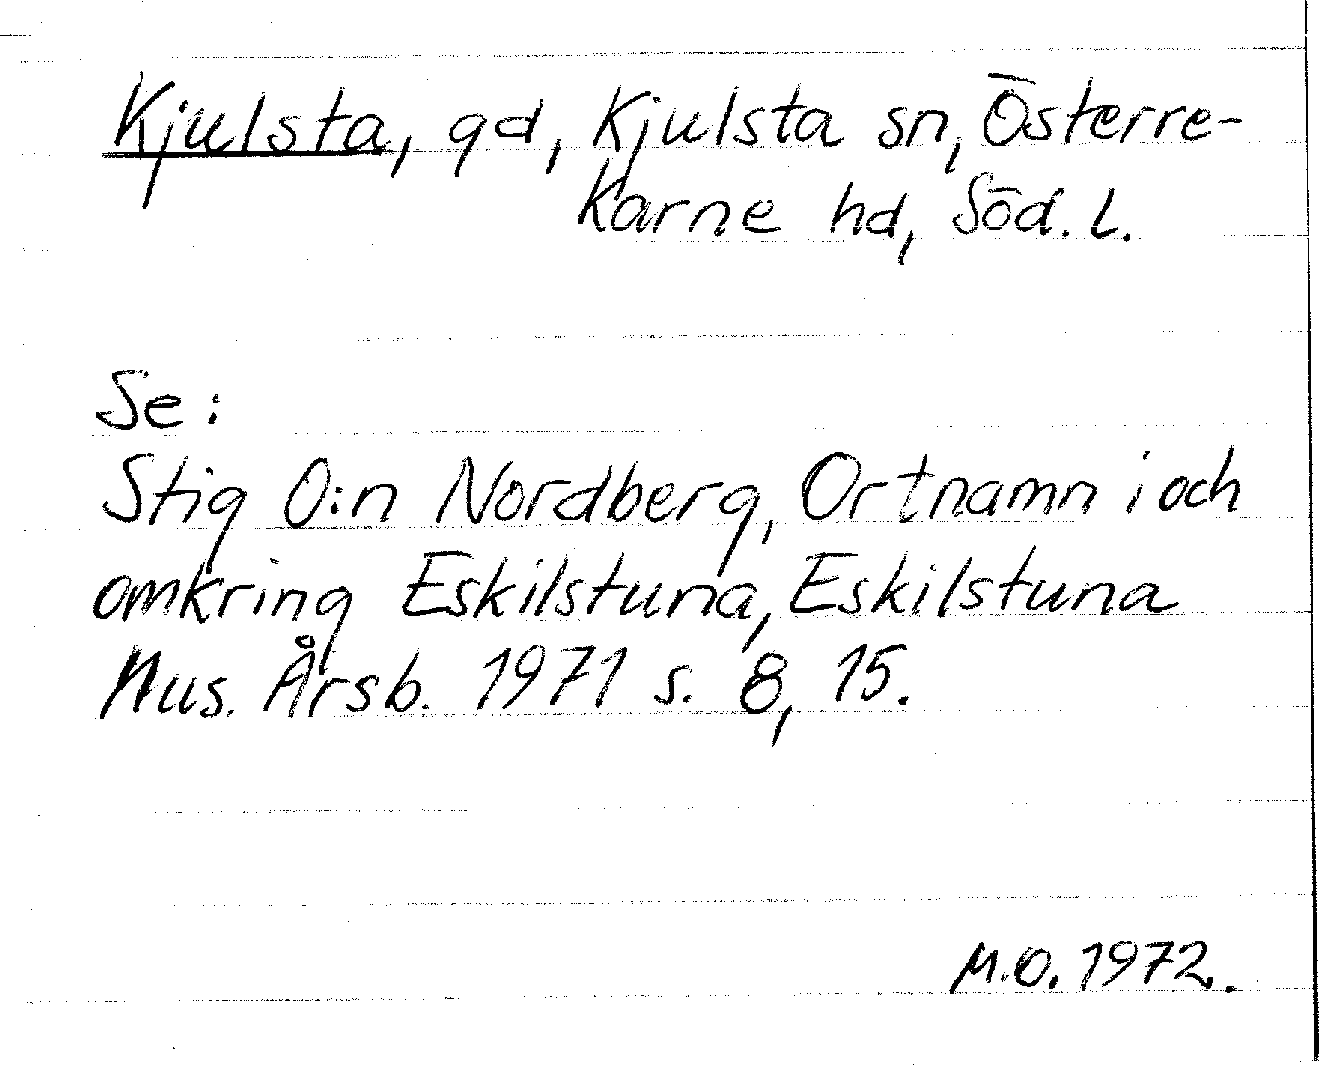 Kjulsta, gd, Kjulsta sn, Österre-
karne hd, Söd. l.
Se:
Stig O:n Nordberg, Ortnamn i och
omkring Eskilstuna, Eskilstuna
Mus. Årsb. 1971 s. 8, 15.
M.O. 1972.